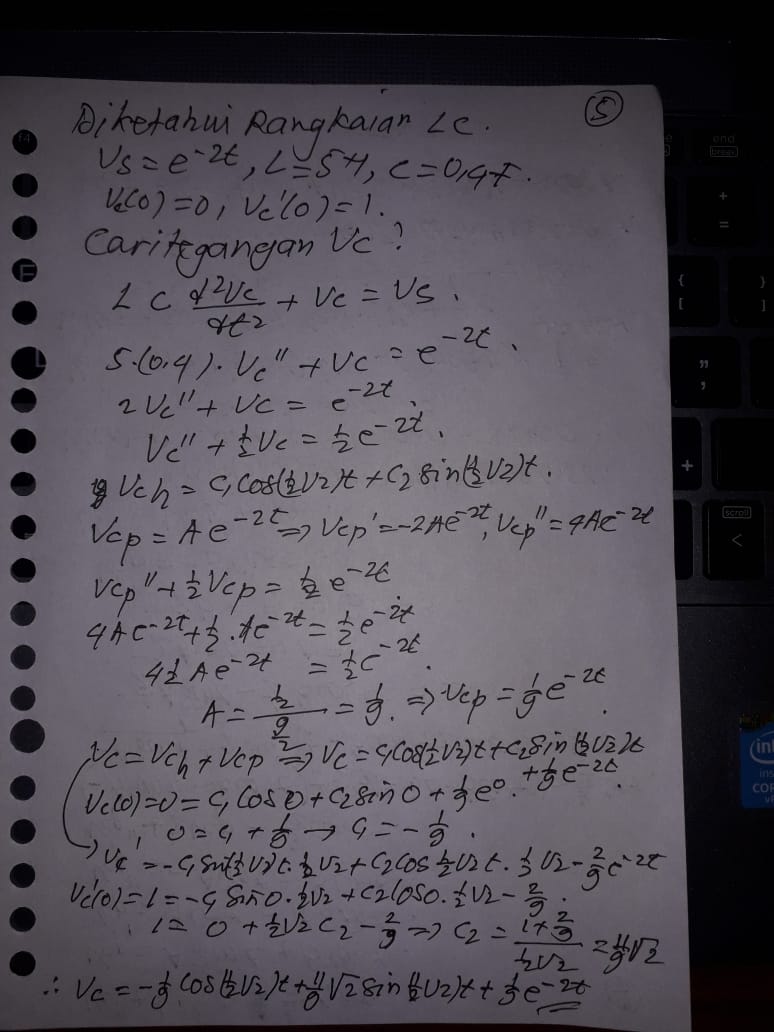 Diketahui Rangkaian LC. (5)
Vs = e^-2t, L = 5H, C = 0,4F.
Vc(0) = 0, Vc'(0) = 1.
Cari tegangan Vc?
LC d²Vc/dt² + Vc = Vs.
5.(0,4). Vc'' + Vc = e^-2t.
2Vc'' + Vc = e^-2t.
Vc'' + ½Vc = ½e^-2t.
Vch = C₁Cos(½√2)t + C₂Sin(½√2)t.
Vcp = Ae^-2t ⇒ Vcp' = -2Ae^-2t, Vcp'' = 4Ae^-2t
Vcp'' + ½Vcp = ½e^-2t
4Ae^-2t + ½.Ae^-2t = ½e^-2t
4½Ae^-2t = ½e^-2t.
A = ½ / 9/2 = 1/9. ⇒ Vcp = 1/9e^-2t.
Vc = Vch + Vcp ⇒ Vc = C₁Cos(½√2)t + C₂Sin(½√2)t
+ 1/9e^-2t.
Vc(0) = 0 = C₁Cos0 + C₂Sin0 + 1/9e⁰.
0 = C₁ + 1/9 → C₁ = -1/9.
Vc' = -C₁Sin(½√2)t.½√2 + C₂Cos½√2t.½√2 - 2/9e^-2t
Vc'(0) = 1 = -C₁Sin0.½√2 + C₂Cos0.½√2 - 2/9.
1 = 0 + ½√2C₂ - 2/9 ⇒ C₂ = 1 + 2/9 / ½√2 = 11/9√2
∴ Vc = -1/9Cos(½√2)t + 11/9√2Sin(½√2)t + 1/9e^-2t
end
break
scroll